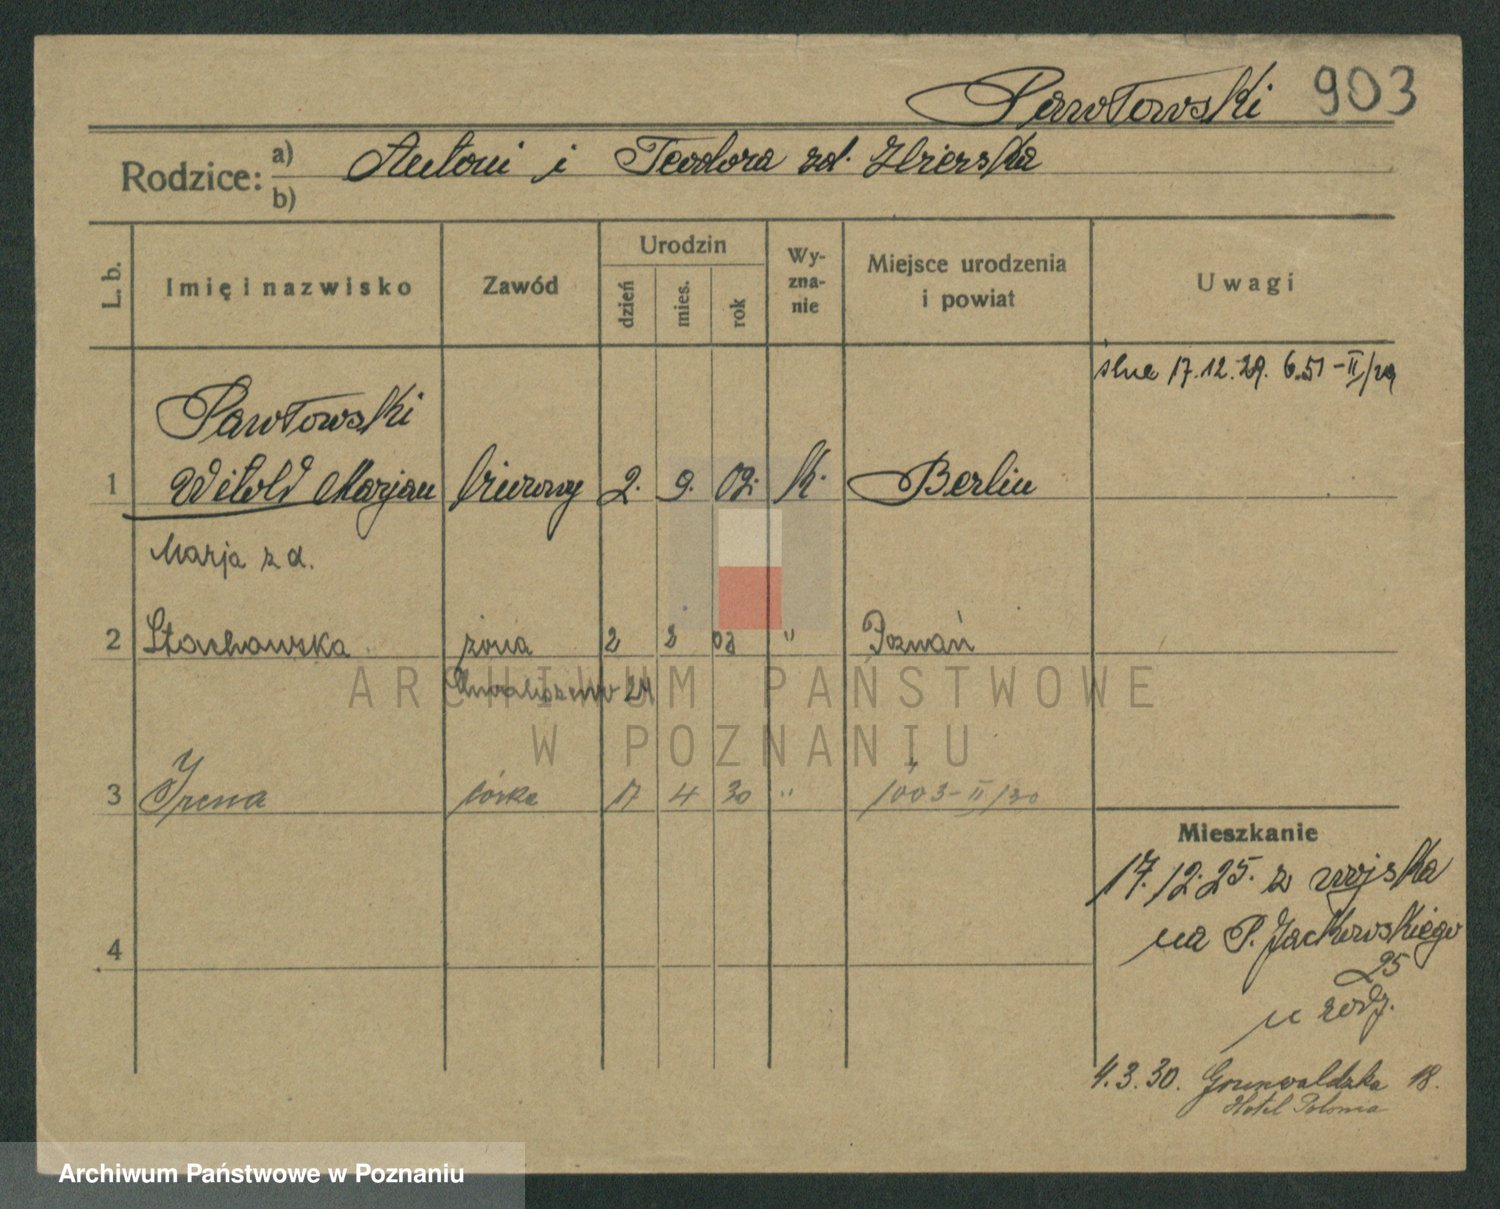 Pawłowski 903
Rodzice: a) Antoni i Teodora zd. Zbierska
b)
L. b. Imię i nazwisko Zawód Urodzin dzień mies. rok Wy-zna-nie Miejsce urodzenia i powiat Uwagi
ślub 17.12.29. 651-II/29
Pawłowski
1 Witold Marjan biurowy 2. 9. 02. k. Berlin
Marja z d.
2 Stachowska żona 2 2 03 " Poznań
Chwaliszewo 24
ARCHIWUM PAŃSTWOWE
W POZNANIU
3 Irena córka 17 4 30 " 1003-II/30
Mieszkanie
17.12.25. z wojska
4 na P. Jackowskiego
25
u rodz.
4.3.30. Grunwaldzka 18.
Hotel Polonia
Archiwum Państwowe w Poznaniu